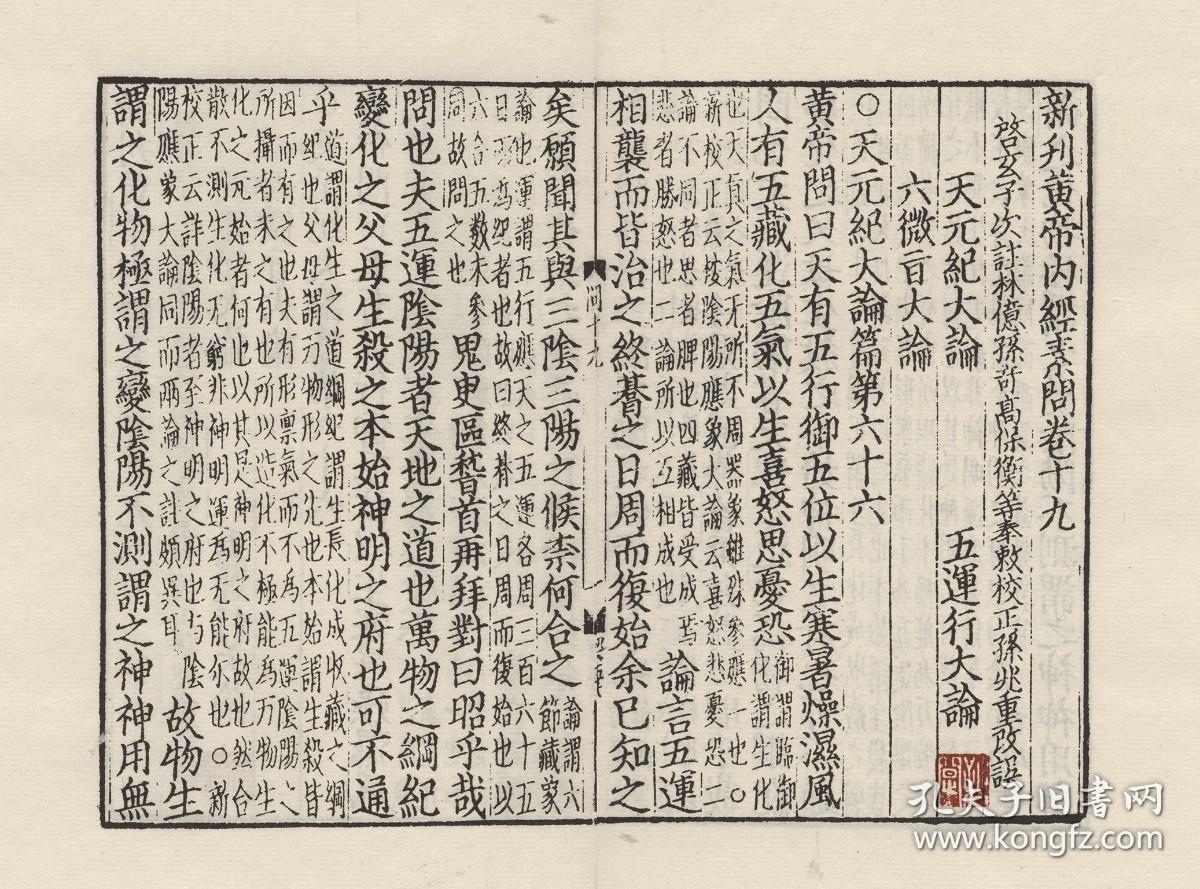 新刋黄帝内經素問卷十九
啓玄子次註林億孫竒髙保衡等奉敕校正孫兆重改誤
天元紀大論　五運行大論
六微㫖大論
○天元紀大論篇第六十六
黄帝問曰天有五行御五位以生寒暑燥濕風
人有五藏化五氣以生喜怒思憂恐御謂臨御化謂生化
也天真之氣无所不周器象雖殊參應一也○
新校正云按陰陽應象大論云喜怒悲憂恐二
論不同者思者脾也四藏皆受成焉
悲者勝怒也二論所以互相成也
論言五運
相襲而皆治之終朞之日周而復始余已知之
矣願聞其與三陰三陽之候柰何合之論謂六節藏象
論也運謂五行應天之五運各周三百六十五
日而爲紀者也故曰終朞之日周而復始也以
六合五数未參
同故問之也
鬼臾區稽首再拜對曰昭乎哉
問也夫五運陰陽者天地之道也萬物之綱紀
變化之父母生殺之本始神明之府也可不通
乎
道謂化生之道綱紀謂生長化成收藏之綱
紀也父母謂万物形之先也本始謂生殺皆
因而有之也夫有形禀氣而不爲五運陰陽之
所攝者未之有也所以造化不極能爲万物生
化之元始者何也以其是神明之府故也然合
散不測生化无窮非神明運爲无能尓也○新
校正云詳陰陽者至神明之府也与陰
陽應象大論同而兩論之註頗異耳
故物生
謂之化物極謂之變陰陽不測謂之神神用無
问十九
孔夫子旧書网
www.kongfz.com